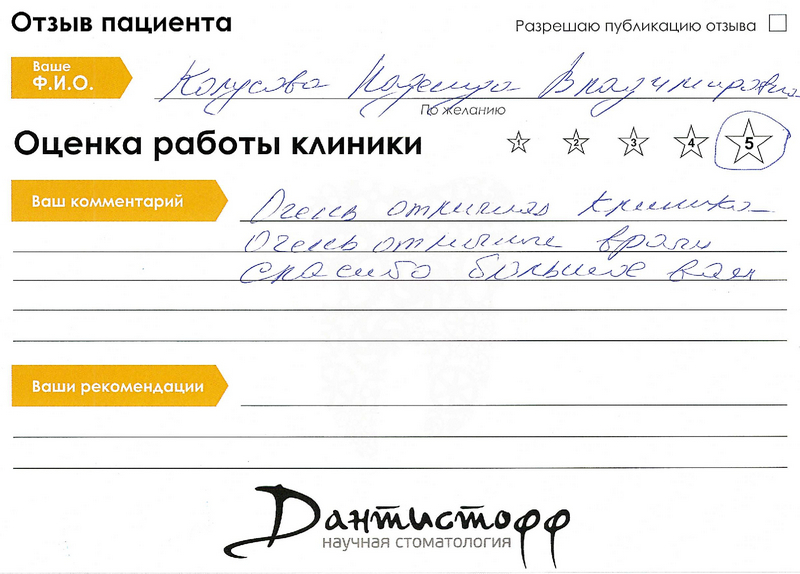 Отзыв пациента
Разрешаю публикацию отзыва
Ваше
Ф.И.О.
Колусова Надежда Владимировна
По желанию
Оценка работы клиники
1 2 3 4 5
Ваш комментарий
Очень отличная клиника
Очень отличные врачи
спасибо большое вам
Ваши рекомендации
Дантистофф
научная стоматология